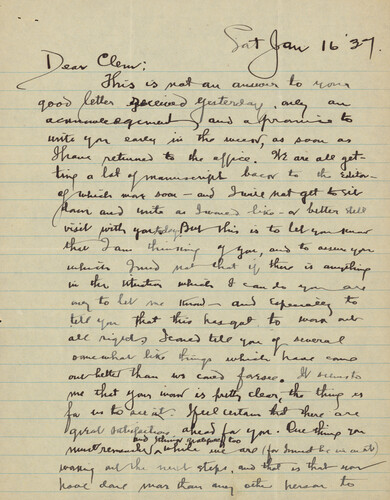 Sat Jan 16 '37.
Dear Clem:
This is not an answer to your
good letter received yesterday, only an
acknowledgement and a promise to
write you early in the week, as soon as
I have returned to the office. We are all get-
ting a lot of manuscript back to the Editor—
of which more soon — and I will not get to sit
down and write as I would like — or better still
visit with you today. But this is to let you know
that I am thinking of you, and to assure you
which I need not that if there is anything
in the situation which I can do you are
to let me know — and especially to
tell you that this has got to work out
all right. I could tell you of several
somewhat like things which have come
out better than we could foresee. It seems to
me that your is pretty clear, the thing is
for us to see it. I feel certain that there are
great satisfactions ahead for you. One thing you
and things too
must remember, while we are (for I must be in on it)
working out the next steps, and that is that you
have done more than any other person to